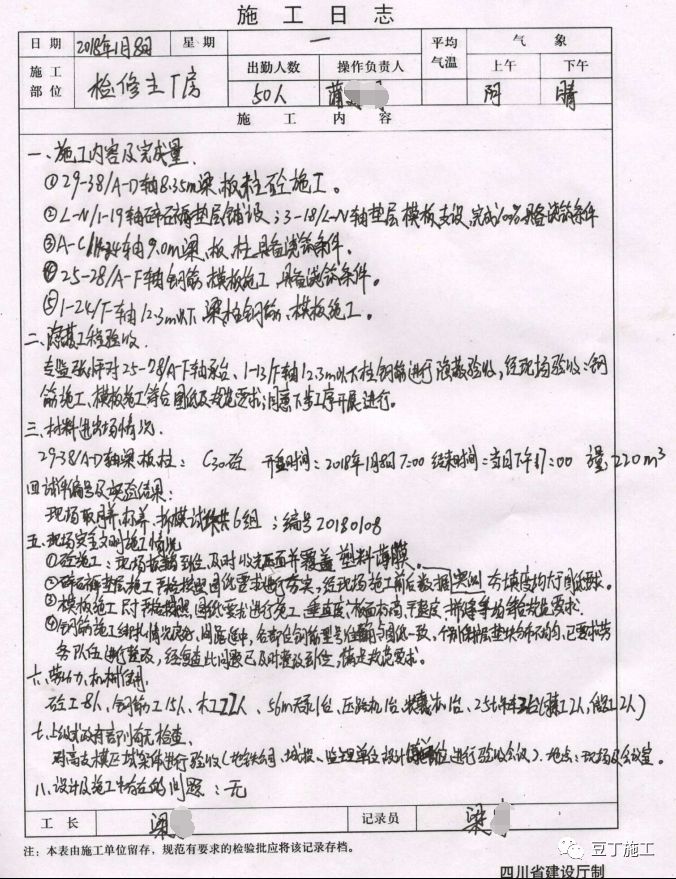 施工日志
日期 2018年1月8日 星期 一 平均气温 气象
施工部位 检修主厂房 出勤人数 操作负责人 上午 下午
50人 蒲 阴 晴
施工内容
一、施工内容及完成量
①29-38/A-D轴8.35m梁、板、柱砼施工。
②L-N/1-19轴碎石褥垫层铺设；3-18/L-N轴垫层模板支设,完成100%具备浇筑条件
③A-C/ 24轴9.0m梁、板、柱具备浇筑条件。
④25-28/A-F轴钢筋、模板施工,具备浇筑条件。
⑤1-24/F轴12.3m以下梁柱钢筋、模板施工。
二、隐蔽工程验收
对25-28/A-F轴承台、1-13/F轴12.3m以下柱钢筋进行隐蔽验收,经现场验收:钢
筋施工、模板施工符合图纸及规范要求,同意下步工序开展进行。
三、材料进出场情况
29-38/A-D轴梁板柱: C30砼 开盘时间:2018年1月8日7:00 结束时间:当日下午17:00 方量220m³
四 试件编号及试验结果:
现场取同养、标养、拆模试块共6组；编号20180108
五、现场安全文明施工情况
①砼施工:现场振捣到位,及时收面并覆盖塑料薄膜。
②碎石褥垫层施工严格按照图纸要求进行夯实,经现场施工前后数据实测 夯填度均大于图纸要求。
③模板施工尺寸严格按照图纸要求进行施工,垂直度、板面标高、平整度、拼缝等均符合规范要求。
④钢筋施工绑扎情况良好,间距适中,各部位钢筋型号 与图纸一致,个别保护层垫块分布不均,已要求劳
务队伍进行整改,经复查此问题已及时整改到位,满足规范要求。
六、劳动力、机械使用
砼工8人、钢筋工15人、木工22人、56m天泵1台、压路机1台、 机1台、25t吊车2台
七、上级或政府部门有无检查
对高支模区域 进行验收(地铁公司、城投、监理单位 进行验收会议)。地点:现场及会议室。
八、设计及施工中存在的问题:无
工长 梁 记录员 梁
注：本表由施工单位留存，规范有要求的检验批应将该记录存档。
豆丁施工
四川省建设厅制